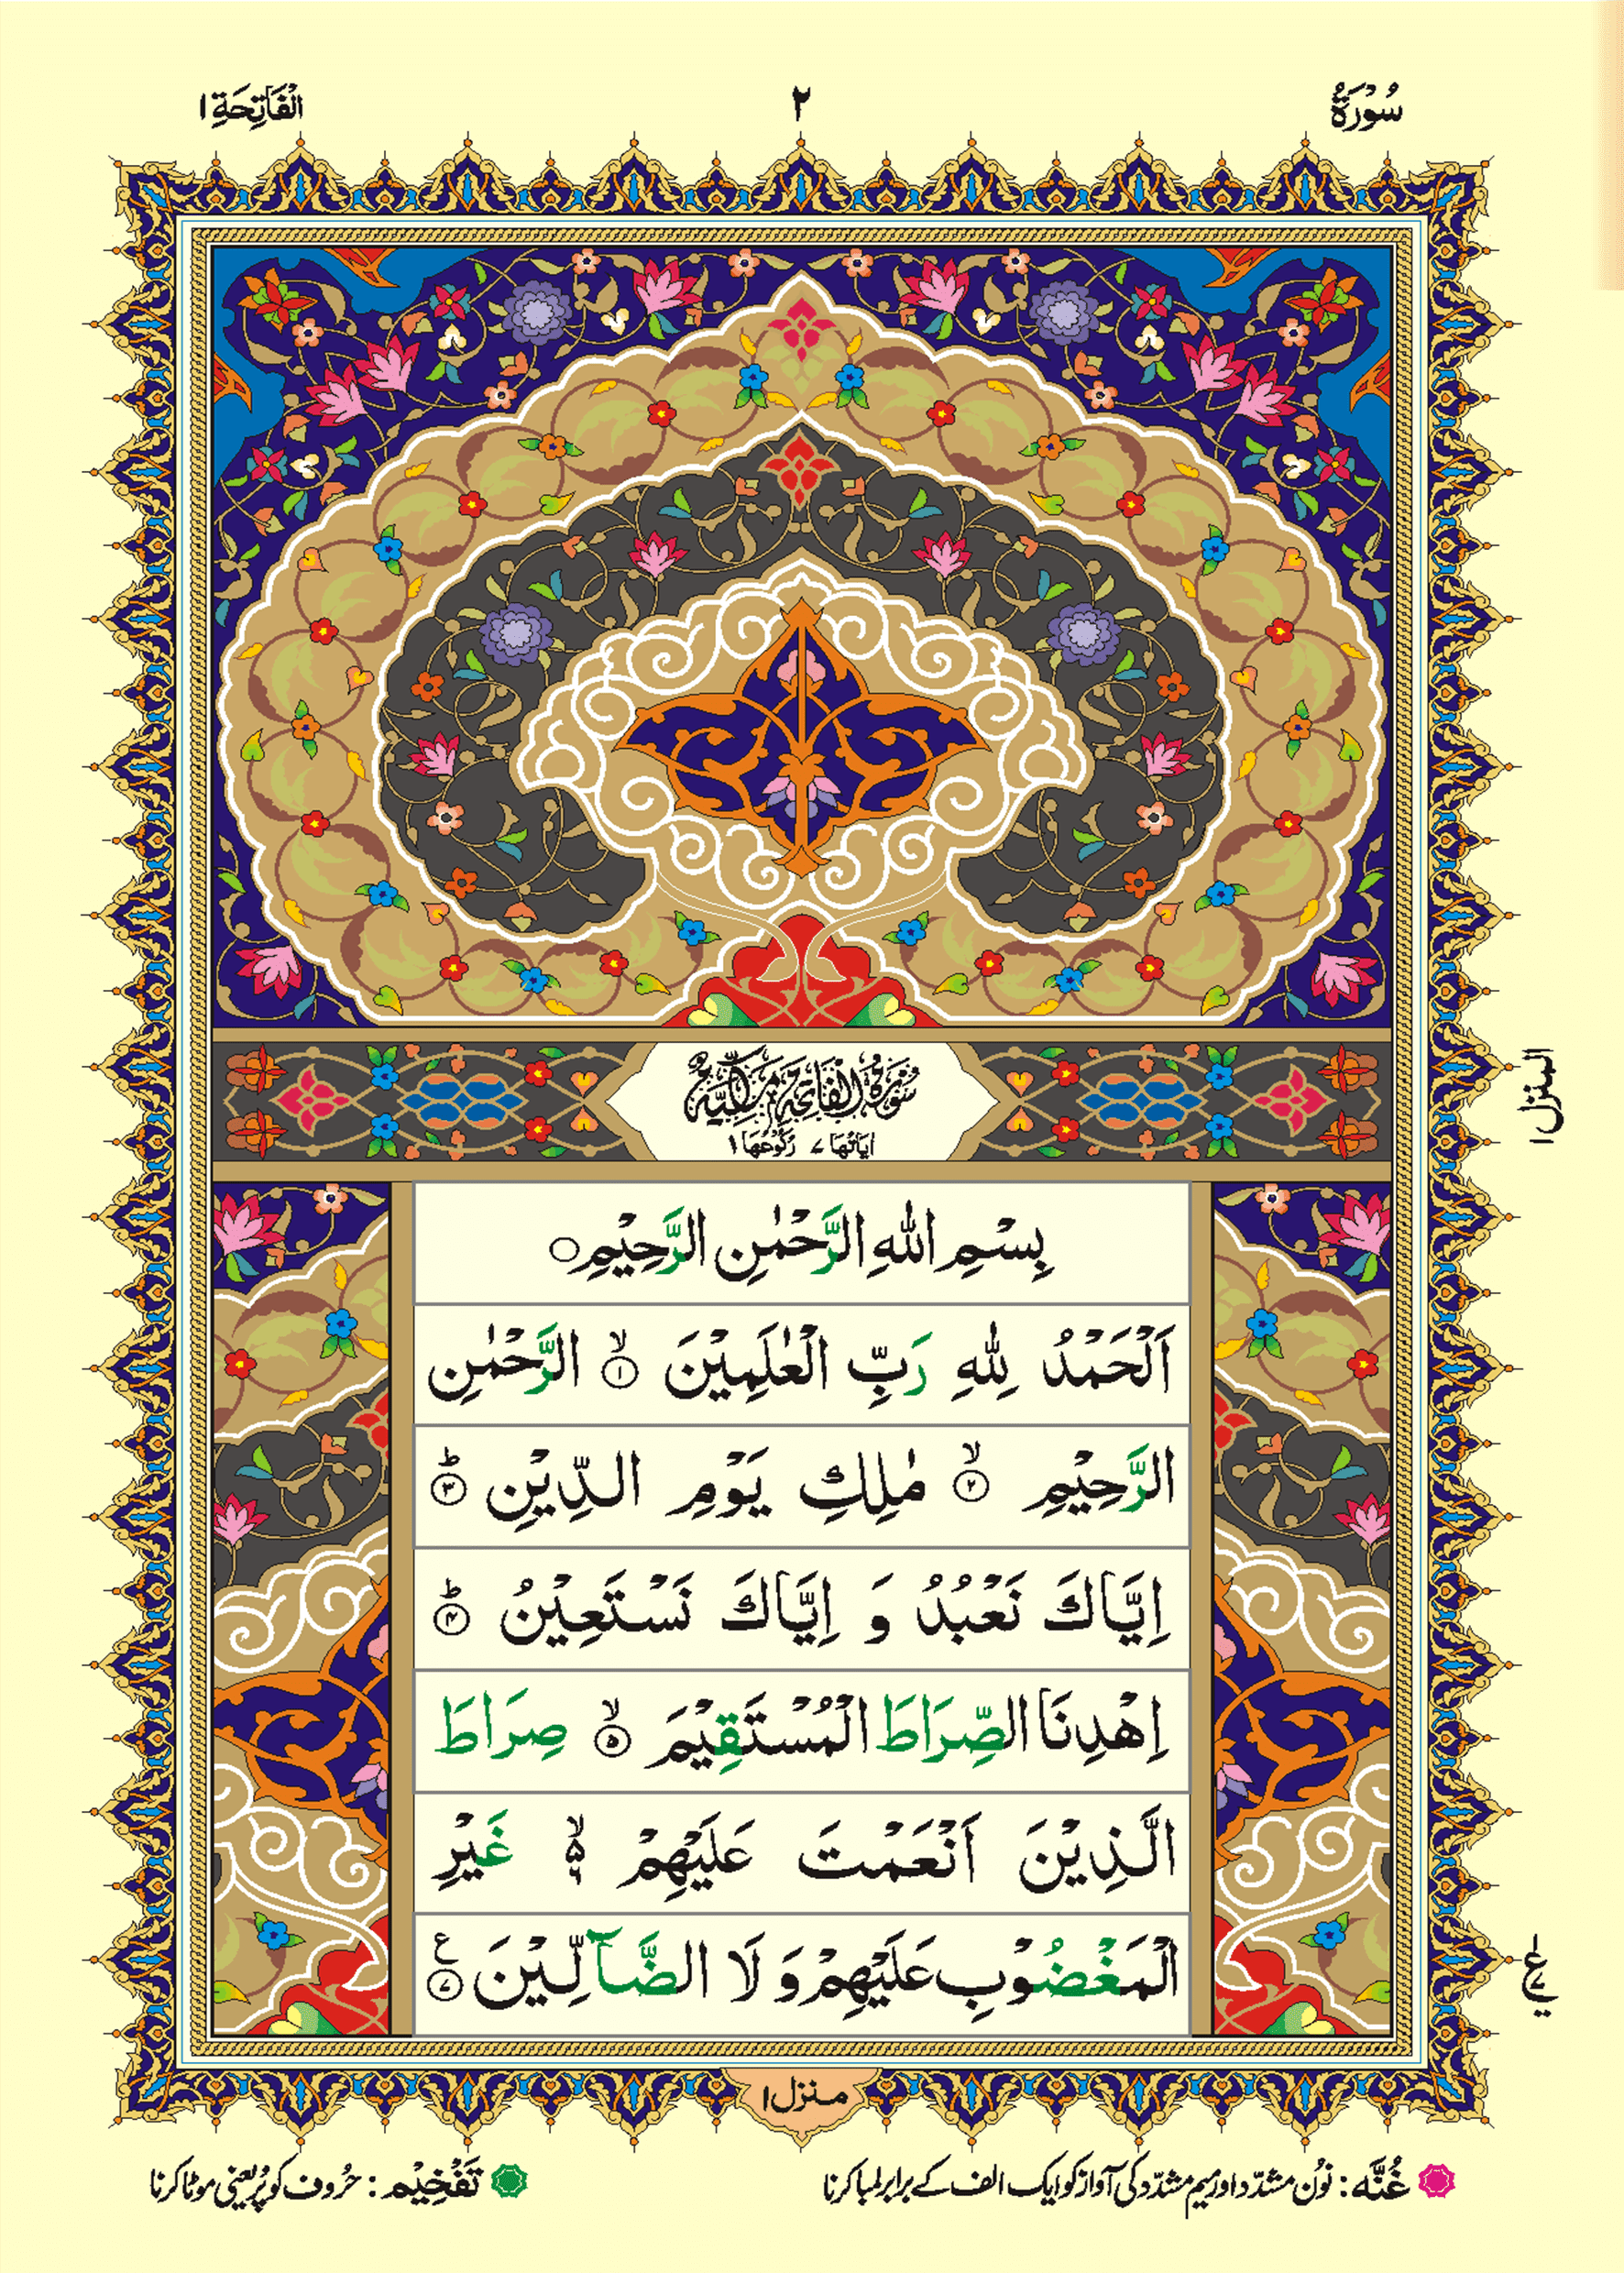 سُوْرَةُ ٢ اَلْفَاتِحَةِ ١
سُوْرَةُ الْفَاتِحَةِ مَكِّيَّةٌ
اٰيَاتُهَا ٧ رُكُوْعُهَا ١
بِسْمِ اللّٰهِ الرَّحْمٰنِ الرَّحِيْمِ ۝
اَلْحَمْدُ لِلّٰهِ رَبِّ الْعٰلَمِيْنَ ۙ﴿۱﴾ الرَّحْمٰنِ
الرَّحِيْمِ ۙ﴿۲﴾ مٰلِكِ يَوْمِ الدِّيْنِ ؕ﴿۳﴾
اِيَّاكَ نَعْبُدُ وَ اِيَّاكَ نَسْتَعِيْنُ ؕ﴿۴﴾
اِهْدِنَا الصِّرَاطَ الْمُسْتَقِيْمَ ۙ﴿۵﴾ صِرَاطَ
الَّذِيْنَ اَنْعَمْتَ عَلَيْهِمْ ۙ۬ۦ۶ غَيْرِ
الْمَغْضُوْبِ عَلَيْهِمْ وَ لَا الضَّآلِّيْنَ ﴿۷﴾ ع
المنزل ١
ع
منزل ۱
غُنَّه: نوُن مشدّد اور میم مشدّد کی آواز کو ایک الف کے برابر لمبا کرنا
تَفْخِیْم: حُروف کو پُر یعنی موٹا کرنا